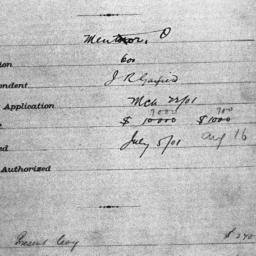 Mentor, O
ion 600
pondent J R Garfield
Application Mch 22/01
7000 700
$ 10000 $1000
ed July 5/01 Aug 16
Authorized
Present Levy $240